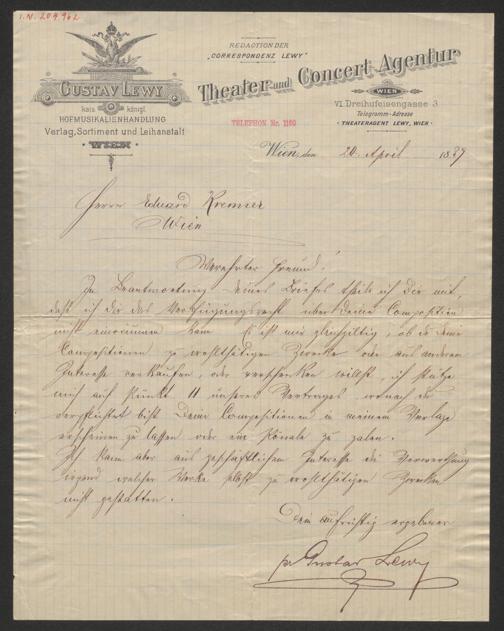 I.N. 209.962
GUSTAV LEWY
kais. königl.
HOFMUSIKALIENHANDLUNG
Verlag, Sortiment und Leihanstalt
WIEN
REDACTION DER
„CORRESPONDENZ LEWY"
Theater und Concert-Agentur
WIEN
VI. Dreihufeisengasse 3
Telegramm-Adresse
„THEATERAGENT LEWY, WIEN"
TELEPHON Nr. 1160
Wien, den 24. April 1889
Herrn Eduard Kremser
Wien
Verehrter Freund!
In Beantwortung Deines Briefes theile ich Dir mit,
daß ich Dir das Verfügungsrecht über Deine Composition
nicht einräumen kann. Es ist mir gleichgiltig, ob Du Deine
Compositionen zu wohlthätigen Zwecken oder aus anderem
Interesse verkaufen, oder verschenken willst, ich stütze
mich auf Punkt 11 unseres Vertrages, wonach Du
verpflichtet bist Deine Compositionen in meinem Verlage
erscheinen zu lassen oder ein Pönale zu zalen.
Ich kann aber aus geschäftlichem Interesse die Verwerthung
irgend welcher Werke selbst zu wohlthätigen Zwecken
nicht gestatten.
Dein aufrichtig ergebener
pr Gustav Lewy